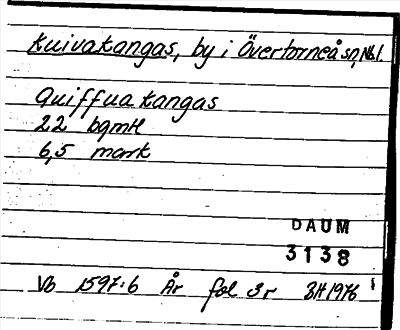 Kuivakangas, by i Övertorneå sn, Nb l.
Quiffua kangas
22 bgmtl
6,5 mark
DAUM
3138
Vb 1597:6 År fol 3r BH 1976